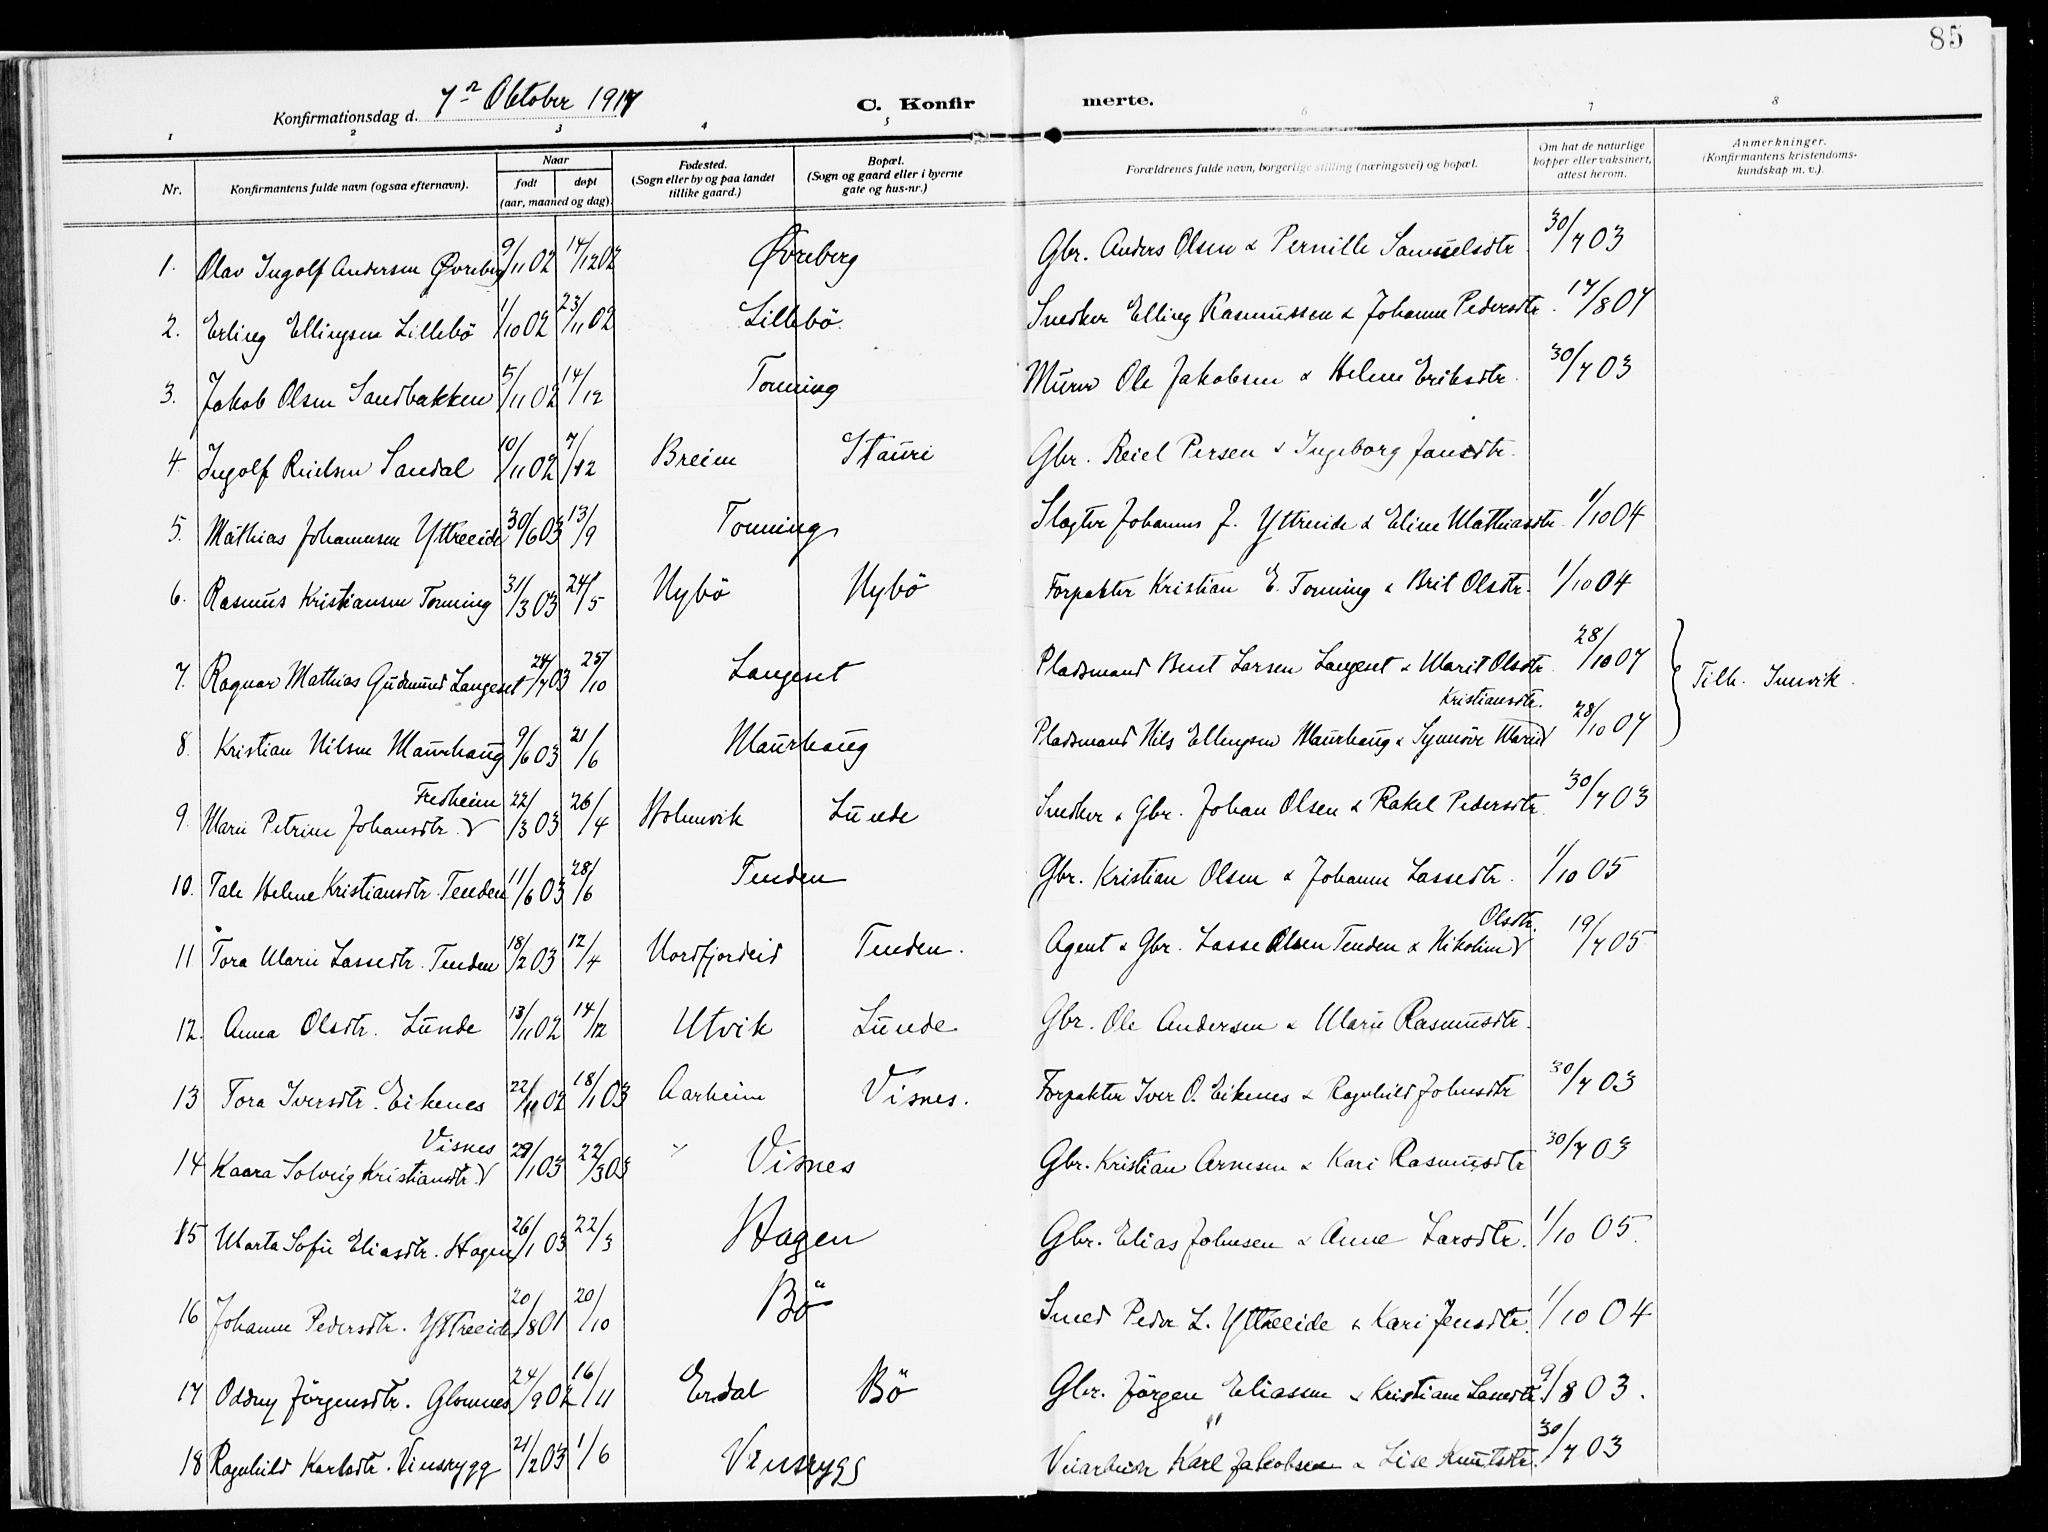 85
Konfirmationsdag d. 7de Oktober 1917 C. Konfir merte.
1 2 3 4 5 6 7 8
Nr. Konfirmantens fulde navn (ogsaa efternavn). Naar født døpt (aar, maaned og dag). Fødested. (Sogn eller by og paa landet tillike gaard.) Bopæl. (Sogn og gaard eller i byerne gate og hus-nr.) Forældrenes fulde navn, borgerlige stilling (næringsvei) og bopæl. Om hat de naturlige kopper eller vaksinert, attest herom. Anmerkninger. (Konfirmantens kristendoms-kundskap m. v.).
1. Olav Ingolf Andersen Øvreberg 9/11 02 14/12 02 Øvreberg Gbr. Anders Olsen & Pernille Samuelsdtr. 30/7 03
2. Erling Ellingsen Lillebö 1/10 02 23/11 02 Lillebö. Snedker Elling Rasmussen & Johanne Pedersdtr. 17/8 07
3. Jakob Olsen Sandbakken 5/11 02 14/12 Tonning Murer Ole Jakobsen & Helene Eriksdtr. 30/7 03
4. Ingolf Reielsen Sandal 10/11 02 7/12 Breim Stauri Gbr. Reiel Persen & Ingeborg Jansdtr.
5. Mathias Johannesen Yttreeide 30/6 03 13/9 Tonning Slagter Johannes J. Yttreeide & Eline Mathiasdtr. 1/10 04
6. Rasmus Kristiansen Tonning 31/3 03 24/5 Nybö Nybö Forpakter Kristian E. Tonning & Brit Olsdtr. 1/10 04
7. Ragnar Mathias Gudmund Langeset 24/7 03 25/10 Langeset Pladsmand Bent Larsen Langeset & Marit Olsdtr. 28/10 07 Tilh. Innvik.
8. Kristian Nilsen Maurhaug 9/6 03 21/6 Maurhaug Pladsmand Nils Ellingsen Maurhaug & Synnöve Marie Kristiansdtr. 28/10 07
9. Marie Petrine Johansdtr. Fredheim 22/3 03 26/4 Holmvik Lunde Snedker & Gbr. Johan Olsen & Rakel Pedersdtr. 30/7 03
10. Tale Helene Kristiansdtr. Tenden 11/6 03 28/6 Tenden Gbr. Kristian Olsen & Johanne Lassedtr. 1/10 05
11 Tora Marie Lassedtr. Tenden 18/2 03 12/4 Nordfjordeid Tenden. Agent & Gbr. Lasse Olsen Tenden & Nikoline Olsdtr. 19/7 05
12. Anna Olsdtr. Lunde 13/11 02 14/12 Utvik Lunde Gbr. Ole Andersen & Marie Rasmusdtr.
13 Tora Iversdtr. Eikenes 22/11 02 18/1 03 Aarheim Visnes. Forpakter Iver O. Eikenes & Ragnhild Johnsdtr 30/7 03
14 Kaara Solveig Kristiansdtr. Visnes 29/1 03 22/3 03 " Visnes Gbr. Kristian Arnesen & Kari Rasmusdtr 30/7 03
15 Marta Sofie Eliasdtr. Hagen 26/1 03 22/3 Hagen Gbr. Elias Johnsen & Anne Larsdtr. 1/10 05.
16 Johanne Pedersdtr. Yttreeide 20/8 01 20/10 Bö Smed Peder L. Yttreeide & Kari Jensdtr. 1/10 04
17 Oddny Jörgensdtr. Glomnes 24/9 02 16/11 Erdal Bö Gbr. Jörgen Eliassen & Kristiane Lassedtr. 9/8 03.
18 Ragnhild Karlsdtr. Vinsrygg 21/2 03 1/6 Vinsrygg Veiarbeider Karl Jakobsen & Lise Knutsdtr. 30/7 03